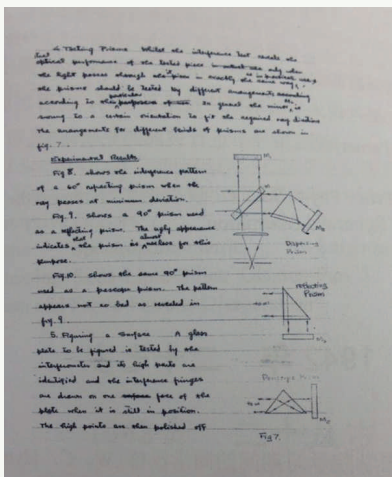 4. Testing Prisms Whilst the interference test reveals the
optical performance of the tested piece only when
the light passes through the prism in exactly the same way, as in practical use,
the prisms should be tested by different arrangements according
according to the particular purpose of use. In general the mirror M₂ is
swung to a certain orientation to fit the required ray direction
The arrangements for different kinds of prisms are shown in
fig. 7.
Experimental Results
Fig 8. shows the interference pattern
of a 60° refracting prism when the
ray passes at minimum deviation.
Fig. 9. shows a 90° prism used
as a reflecting prism. The ugly appearance
indicates that the prism is almost useless for this
purpose.
Fig. 10. shows the same 90° prism
used as a prism. The pattern
appears not so bad as revealed in
fig. 9.
5. Figuring a Surface A glass
plate to be figured is tested by the
interferometer and its high parts are
identified and the interference fringes
are drawn on one surface face of the
plate when it is still in position.
The high points are then polished off
M₁
M₂
Dispersing
Prism
reflecting
Prism
M₂
Prism
M₂
Fig 7.
194